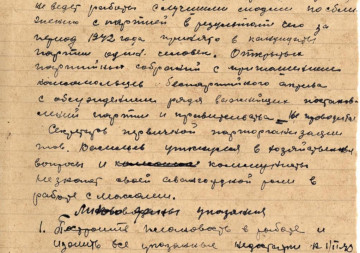 не ведет работы с лучшими людьми по сбли-
жению с партией в результате чего за
период 1942 года принято в кандидаты
партии один человек. Открытых
партийных собраний с приглашением
комсомольцев беспартийного актива
с обсуждением ряда важнейших постанов-
лений партии и правительства не проводится
Секретарь первичной парторганизации
тов. увлекся в хозяйственные
вопросы и коммунисты
не знают своей авангардной роли в
работе с массами.
указания
1. Построить плановость в работе и
изжить все указанные недостатки к